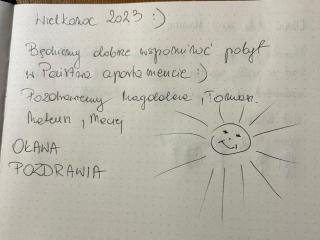 Wielkanoc 2023 :)
Będziemy dobrze wspominać pobyt
w Państwa apartamencie :)
Pozdrawiamy Magdalena, Tomasz
Maciej
OŁAWA
POZDRAWIA